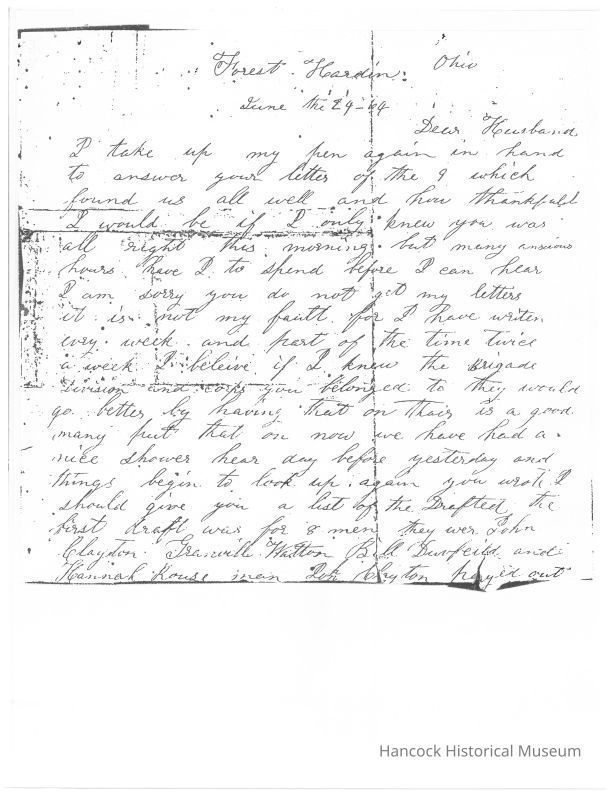 Forest Hardin: Ohio
June the 29-64
Dear Husband
I take up my pen again in hand
to answer your letter of the 9 which
found us all well and how thankfull
I would be if I only knew you was
all right this morning. but many anxious
hours have I to spend before I can hear
I am sorry you do not get my letters
it is not my fault for I have writen
evry week and part of the time twice
a week I beleive if I knew the Brigade
Division and corps you belonged to they would
go better by having that on thair is a good
many put that on now we have had a
nice shower hear day before yesterday and
things begin to look up again you wrote I
should give you a list of the Drafted, the
first draft was for 8 men they wer John
Clayton Granville Bill and
Hannah House man John Clayton payed out
Hancock Historical Museum